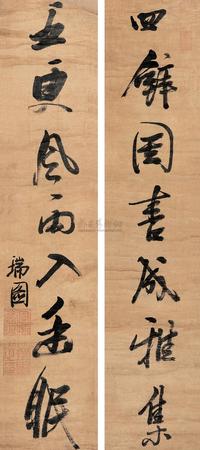 四壁圖書成雅集
五更風雨入眠
瑞圖